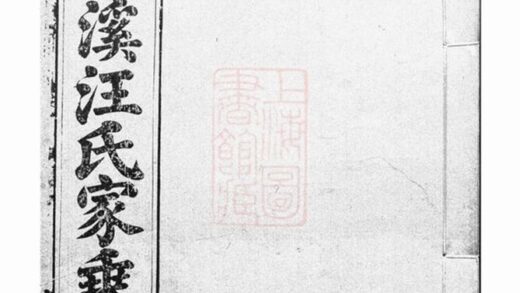 溪汪氏家乘
上海圖
書館藏